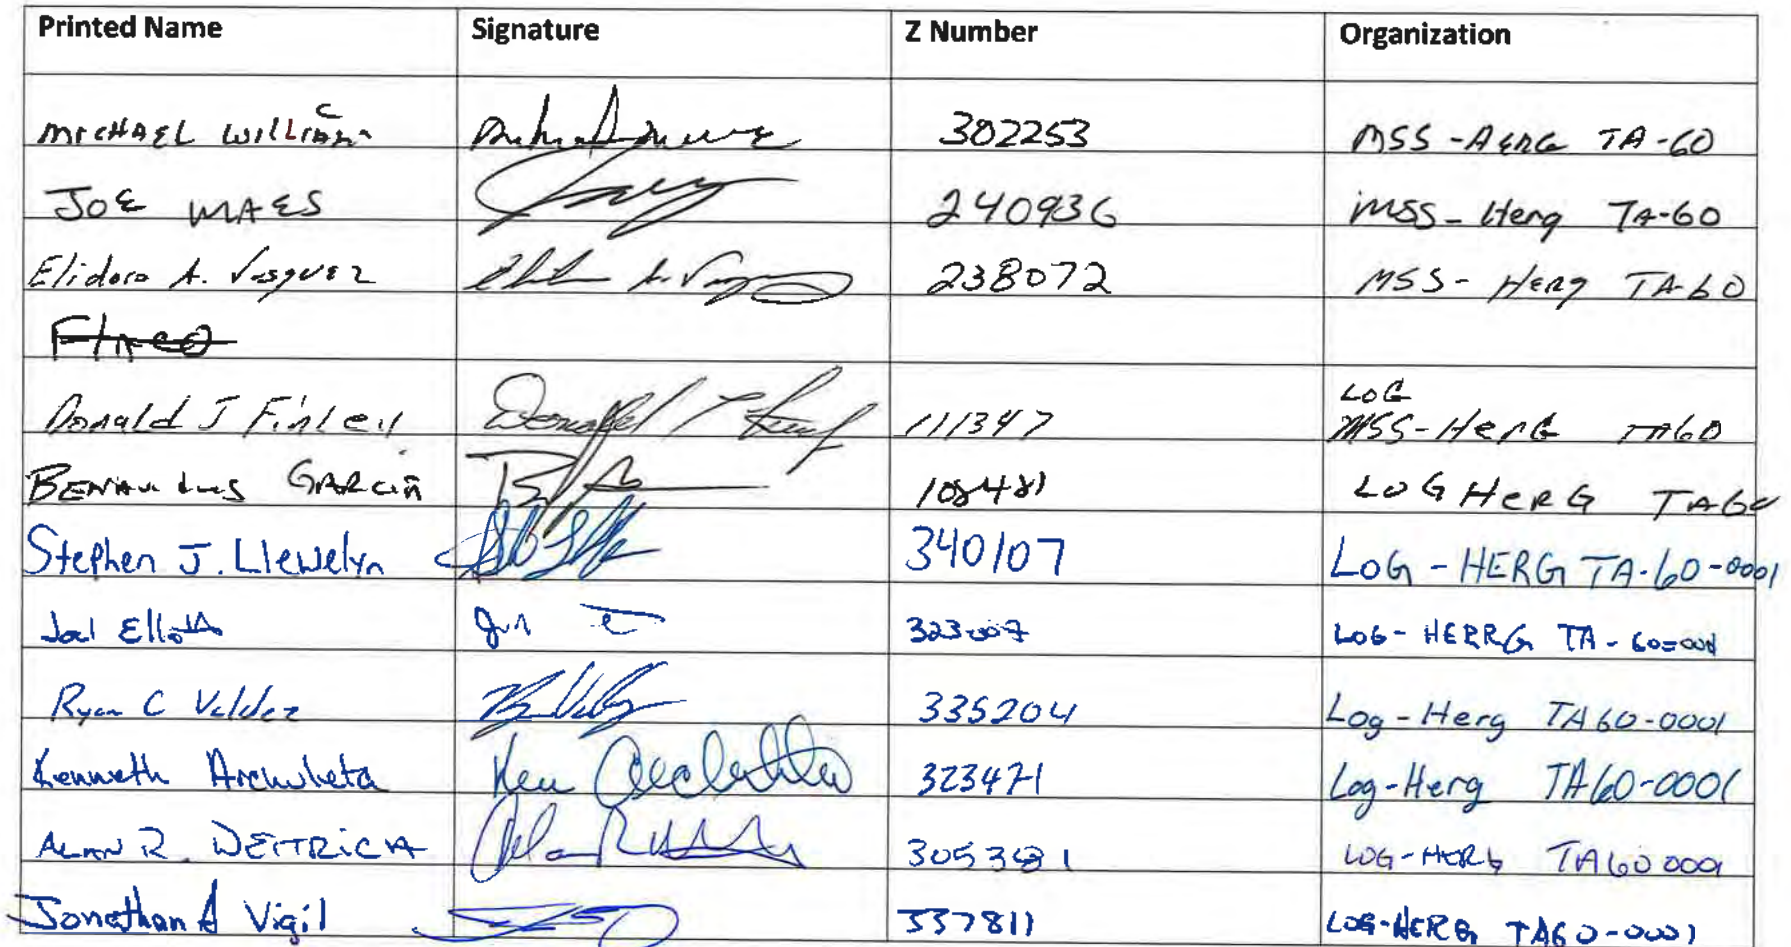 Printed Name Signature Z Number Organization
MICHAEL C WILLIAMS 302253 MSS-HERG TA-60
JOE MAES 240936 MSS-Herg TA-60
Elidoro A. Vasquez 238072 MSS-Herg TA-60
Donald J Finley 111347 LOG MSS-HerG TA60
GARCIA LOG HERG TA60
Stephen J. Llewelyn 340107 LOG-HERG TA-60-0001
Joel Elliott 323007 LOG-HERRG TA-60-0001
Ryan C Valdez 335204 Log-Herg TA60-0001
Kenneth Archuleta Ken Archuleta 323471 Log-Herg TA60-0001
ALAN R. DEITRICH LOG-HERG TA60 0001
Jonathan A Vigil 337811 LOG-HERG TA60-0001